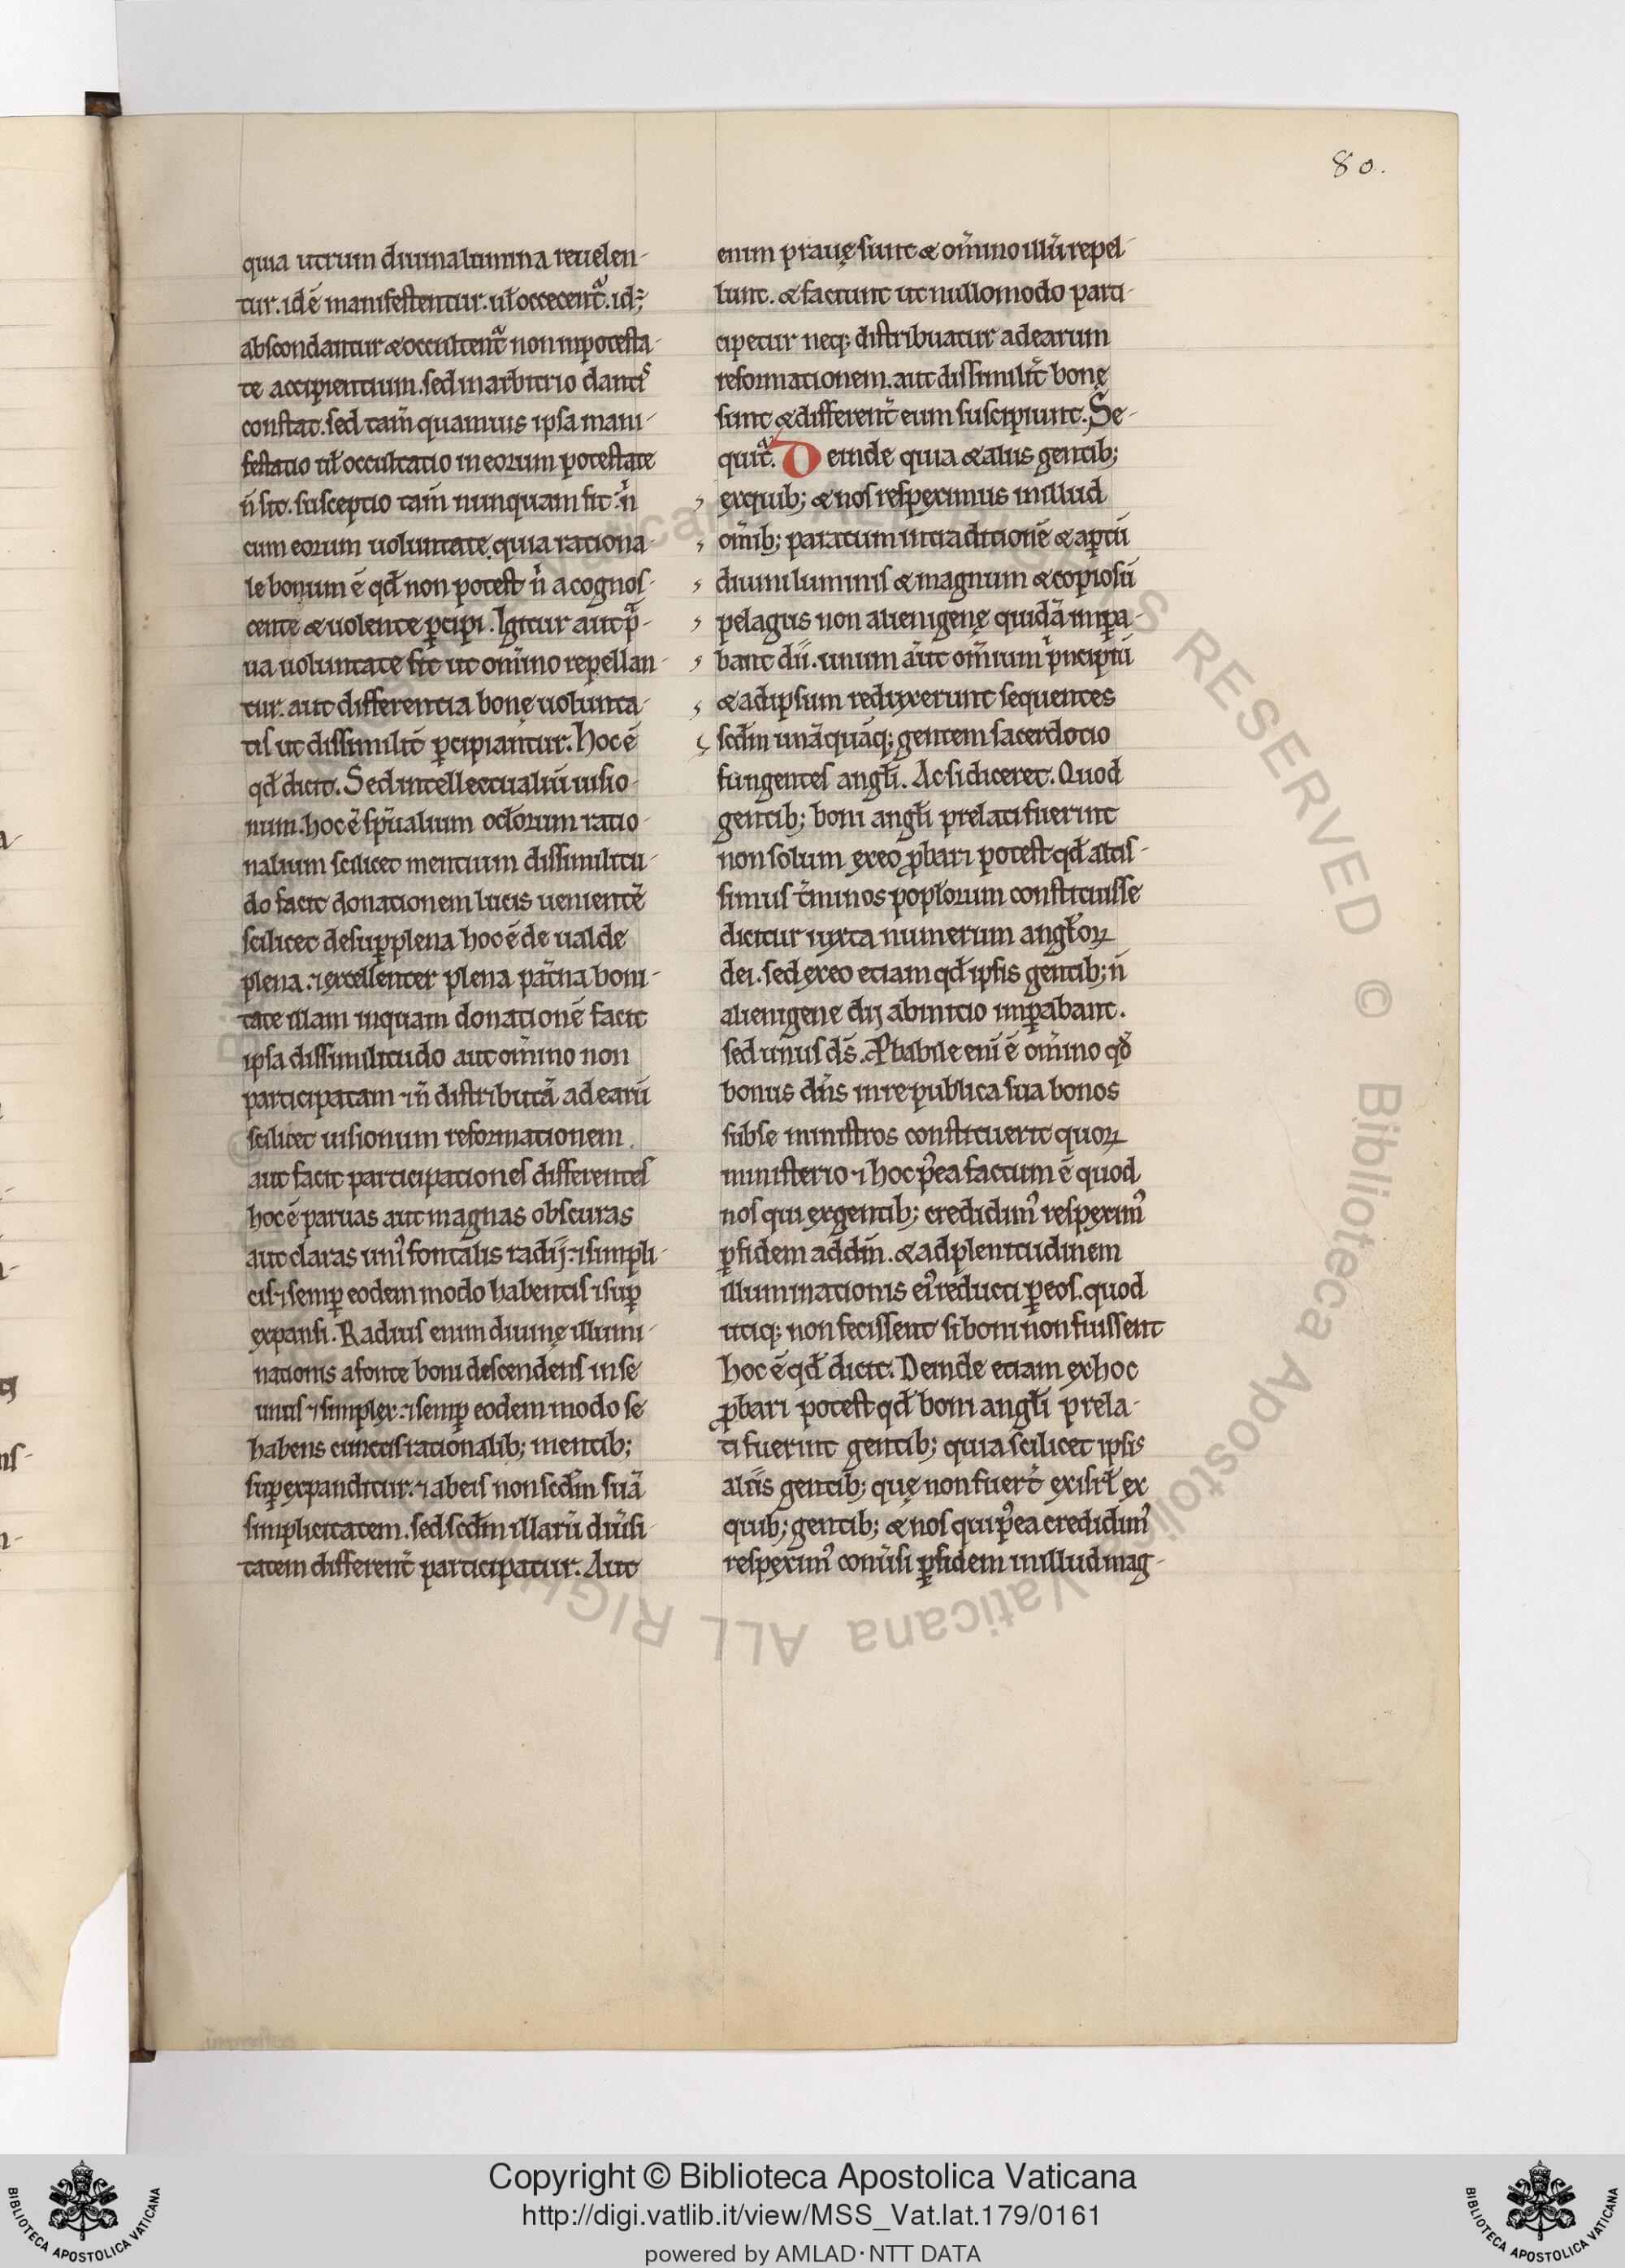 80.
quia utrum diuina lumina reuelen-
tur. id ē manifestentur. uł occecent᷑. id ÷
abscondantur & occultent᷑ non in potesta-
te accipientium. sed in arbitrio dantis
constat. sed tam̄ quamuis ipsa mani-
festatio uł occultatio in eorum potestate
n̄ sit. susceptio tam̄ nunquam fit. n̊
cum eorum uoluntate. quia rationa-
le bonum ē qđ non potest n̊ a cognos-
cente & uolente ꝑcipi. Igitur aut p̃-
ua uoluntate fit ut om̄ino repellan-
tur. aut differentia bonę uolunta-
tis ut dissimilit̄ ꝑcipiantur. hoc ē
qđ dicit. Sed intellectualiū uisio-
num. hoc ē sp̄ualium ocłorum ratio-
nalium scilicet mentium dissimilitu-
do facit donationem lucis uenientē
scilicet desuꝑ plena hoc ē de ualde
plena. ⁊ excellenter plena pat̄na boni-
tate illam inquam donationē facit
ipsa dissimilitudo aut om̄ino non
participatam ⁊ in̄distributā ad earū
scilicet uisionum reformationem.
aut facit participationes differentes
hoc ē paruas aut magnas obscuras
aut claras uni᷒ fontalis radij. ⁊ simpli-
cis ⁊ semꝑ eodem modo habentis ⁊ suꝑ
expansi. Radius enim diuinę illumi-
nationis a fonte boni descendens in se
unus ⁊ simplex. ⁊ semꝑ eodem modo se
habens cunctis rationalib; mentib;
suꝑexpanditur. ⁊ ab eis non scđm suā
simplicitatem. sed scđm illarū diu̅si-
tatem different̄ participatur. Aut
enim prauę sunt & om̄ino illū repel-
lunt. & faciunt ut nullomodo parti-
cipetur neq; distribuatur ad earum
reformationem. aut dissimilit̄ bonę
sunt & different̄ eum suscipiunt. Se-
quit᷑. Deinde quia & aliis gentib;
ex quib; & nos respeximus in illud
om̄ib; paratum in traditionē & aꝑtū
diuini luminis & magnum & copiosū
pelagus non alienigenę quidā imꝑa-
bant dii. unum aūt om̄ium p̊ncipiū
& ad ipsum reduxerunt sequentes
scđm unāquāq; gentem sacerdotio
fungentes angłi. Ac si diceret. Quod
gentib; boni angłi prelati fuerint
non solum ex eo ꝓbari potest qđ altis-
simus t̄minos popłorum constituisse
dicitur iuxta numerum angłoꝝ
dei. sed ex eo etiam qđ ipsis gentib; n̄
alienigene dij ab initio imꝑabant.
sed unus ds̄. Ꝓbabile enī ē om̄ino qđ
bonus dn̄s in re publica sua bonos
sub se ministros constituerit quoꝝ
ministerio ⁊ hoc p̊ea factum ē quod
nos qui ex gentib; credidim᷒ respexim᷒
ꝑ fidem ad dm̄. & ad plenitudinem
illuminationis ei᷒ reducti ꝑ eos. quod
utiq; non fecissent si boni non fuissent
hoc ē qđ dicit. Deinde etiam ex hoc
ꝓbari potest qđ boni angłi prela-
ti fuerint gentib; quia scilicet ipsis
aliis gentib; quę non fuert̄ ex isrł ex
quib; gentib; & nos qui p̊ea credidim᷒
respexim᷒ conu̅si ꝑ fidem in illud mag-
Copyright © Biblioteca Apostolica Vaticana
http://digi.vatlib.it/view/MSS_Vat.lat.179/0161
powered by AMLAD·NTT DATA
BIBLIOTECA APOSTOLICA VATICANA
BIBLIOTECA APOSTOLICA VATICANA